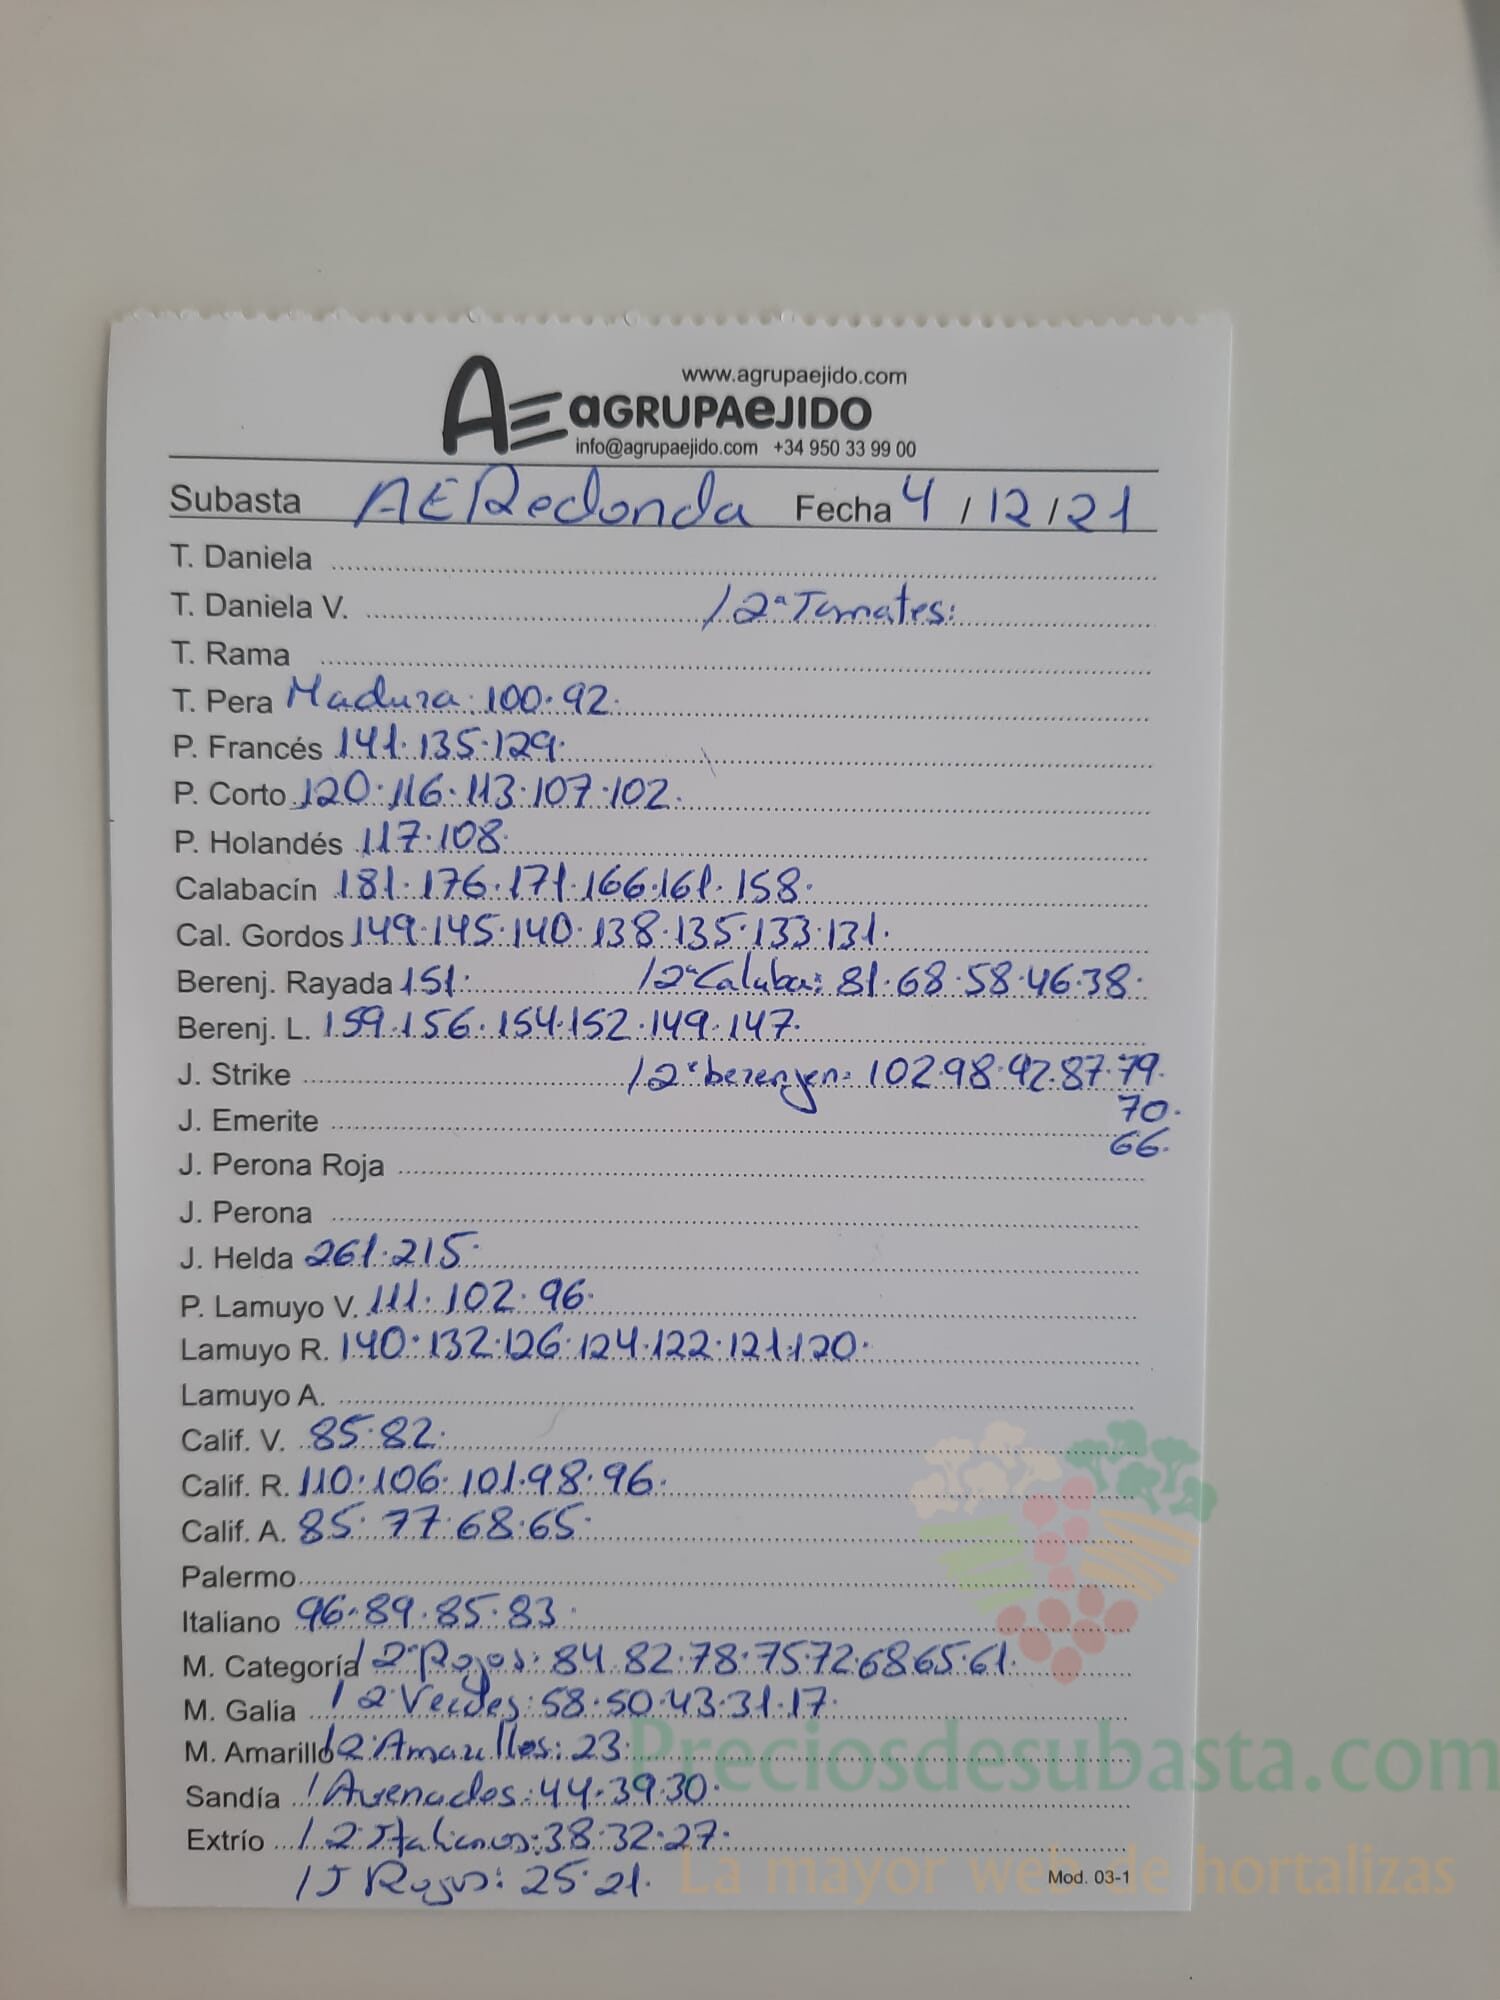 www.agrupaejido.com
AE aGRUPAeJIDO
info@agrupaejido.com +34 950 33 99 00
Subasta AE Redonda Fecha 4/12/21
T. Daniela
T. Daniela V. / 2ª Tomates:
T. Rama
T. Pera Madura: 100·92·
P. Francés 141·135·129·
P. Corto 120·116·113·107·102·
P. Holandés 117·108·
Calabacín 181·176·171·166·161·158·
Cal. Gordos 149·145·140·138·135·133·131·
Berenj. Rayada 151· / 2ª Calaba: 81·68·58·46·38·
Berenj. L. 159·156·154·152·149·147·
J. Strike / 2ª berenjen: 102·98·92·87·79·
70·
J. Emerite
66·
J. Perona Roja
J. Perona
J. Helda 261·215·
P. Lamuyo V. 111·102·96·
Lamuyo R. 140·132·126·124·122·121·120·
Lamuyo A.
Calif. V. 85·82·
Calif. R. 110·106·101·98·96·
Calif. A. 85·77·68·65·
Palermo
Italiano 96·89·85·83·
M. Categoría / 2ª Rojos: 84·82·78·75·72·68·65·61·
M. Galia / 2 Verdes: 58·50·43·31·17·
M. Amarillo / 2 Amarillos: 23·
Sandía / Avenados: 44·39·30·
Extrío / 2 Italianos: 38·32·27·
/ J Rojos: 25·21·
Mod. 03-1
Preciosdesubasta.com
La mayor web de hortalizas